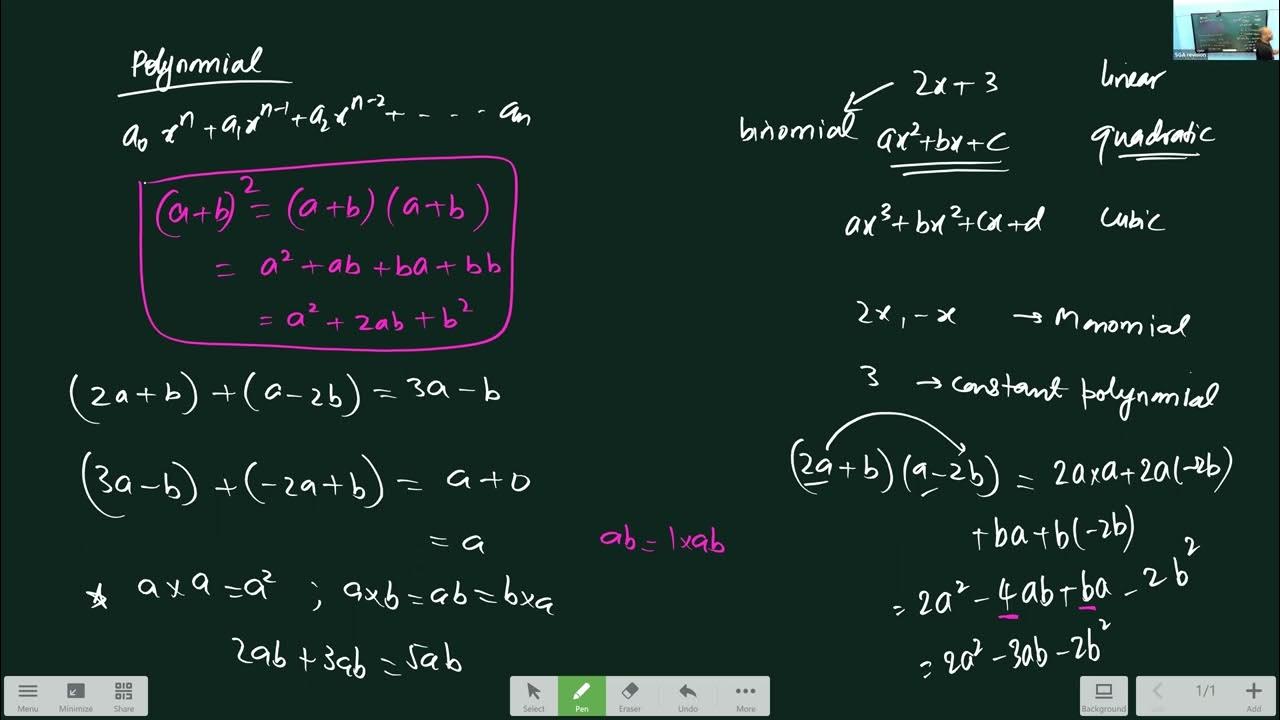 Polynomial
a₀xⁿ + a₁xⁿ⁻¹ + a₂xⁿ⁻² + - - - - aₙ
(a+b)² = (a+b)(a+b)
= a² + ab + ba + bb
= a² + 2ab + b²
(2a+b) + (a-2b) = 3a-b
(3a-b) + (-2a+b) = a+0
= a
* a×a = a² ; a×b = ab = b×a
2ab + 3ab = 5ab
ab = 1×ab
2x+3 linear
binomial ax²+bx+c quadratic
ax³+bx²+cx+d cubic
2x, -x → Monomial
3 → constant polynomial
(2a+b)(a-2b) = 2a×a+2a(-2b)
+ba+b(-2b)
= 2a² - 4ab + ba - 2b²
= 2a² - 3ab - 2b²
SGA revision
Menu Minimize Share Select Pen Eraser Undo More Background 1/1 Add